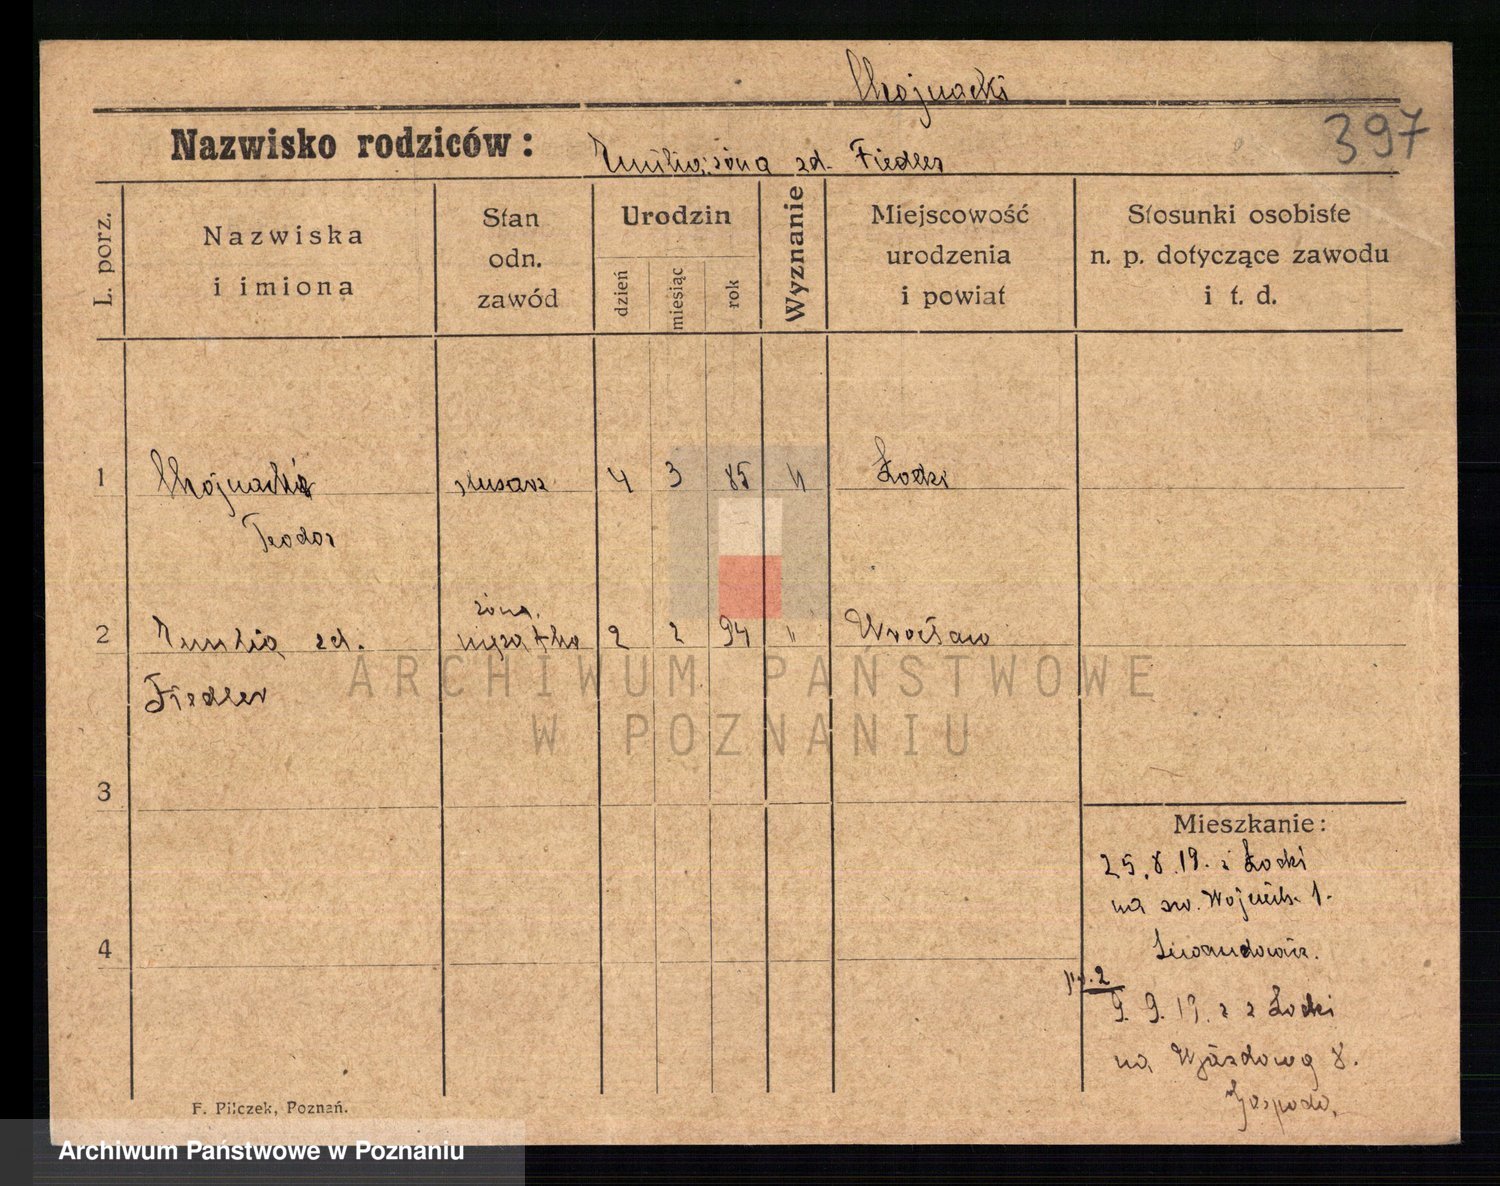 Chojnacki
397
Nazwisko rodziców:
Emilia żona zd. Fiedler
L. porz.
Nazwiska
i imiona
Stan
odn.
zawód
Urodzin
dzień
miesiąc
rok
Wyznanie
Miejscowość
urodzenia
i powiat
Stosunki osobiste
n. p. dotyczące zawodu
i t. d.
1
Chojnacki
Teodor
ślusarz
4 3 85
Łodzi
2
żona.
Emilia zd.
Fiedler
2 2 94 "
Wrocław
ARCHIWUM PAŃSTWOWE
W POZNANIU
3
4
Mieszkanie:
25.8.19. z Łodzi
na św. Wojciech. 1.
p. 2
9. 9. 19. z Łodzi
na Wjazdową 8.
Gospoda.
F. Pilczek, Poznań.
Archiwum Państwowe w Poznaniu